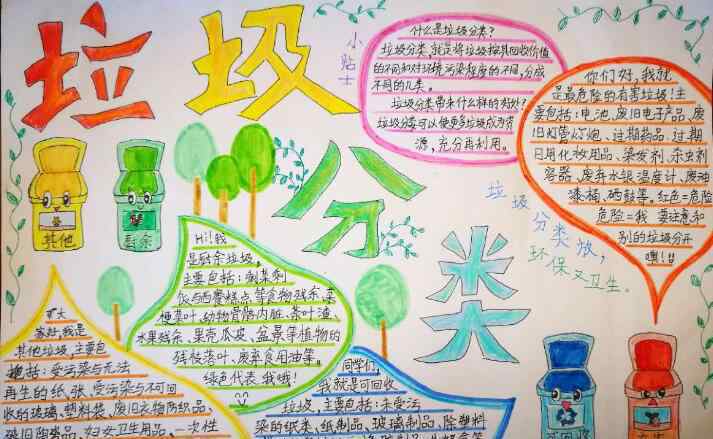 垃圾
分
类
小贴士
什么是垃圾分类?
垃圾分类,就是将垃圾按其回收价值
的不同和对环境污染程度的不同,分成
不同的几类。
垃圾分类带来什么样的好处?
垃圾分类可以使更多垃圾成为资
源,充分再利用。
你们好,我就
是最危险的有害垃圾!主
要包括:电池、废旧电子产品、废
旧灯管灯炮、过期药品、过期
日用化妆用品、染发剂、杀虫剂
容器、废弃水银温度计、废油
漆桶、硒鼓等。红色=危险
危险=我 要注意和
别的垃圾分开
噢!!!
垃圾
分类放,
环保又卫生。
其他
厨余
Hi!我
是厨余垃圾,
主要包括:剩菜剩
饭与西餐糕点等食物残余、菜
梗菜叶、动物骨骼内脏、茶叶渣、
水果残余、果壳瓜皮、盆景等植物的
残枝落叶、废弃食用油等。
绿色代表我哦!
大
家好,我是
其他垃圾,主要包
括:受污染与无法
再生的纸,受污染与不可回
收的玻璃、塑料袋、废旧衣物纺织品、
破旧陶瓷品、妇女卫生用品、一次性
同学们,
我就是可回收
垃圾,主要包括:未受污
染的纸类、纸制品、玻璃制品、除塑料